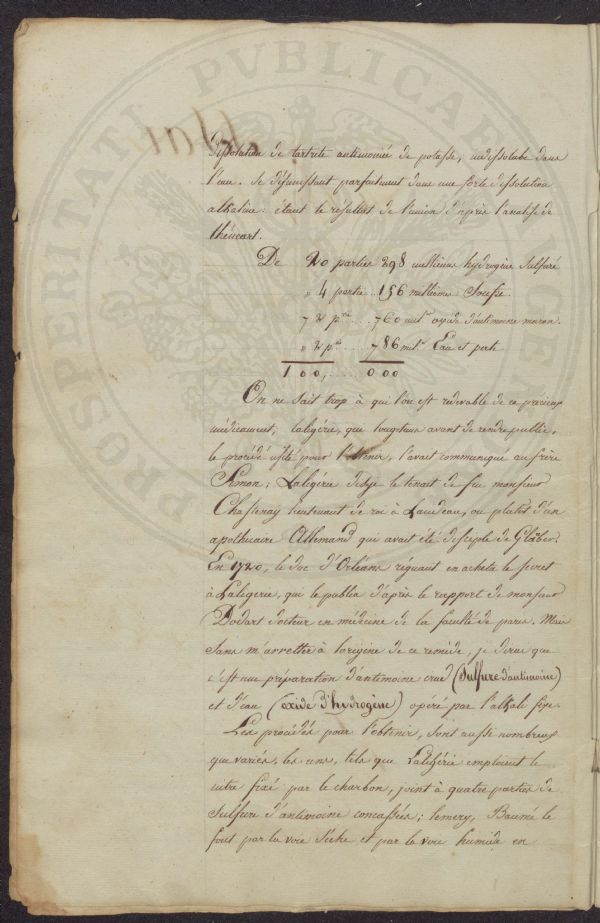 dissolution de tartrite antimoniée de potasse, indissolube dans
l'eau. se désunissant parfaitement dans une forte dissolution
alkaline: étant le résultat de l'union d'après l'analise de
thénart.
De 20 parties 298 milliemes hydrogène sulfuré
" 4 partie .. 156 milliemes Soufre.
72 p.ies .... 760 mil.es oxide d'antimoine maron.
" 2 p.ies .... 786 mil.es Eau et perte
100, ...... 000
On ne sait trop à qui l'on est redevable de ce precieux
médicament; laligérie, que longtems avant de rendre public,
le procédé usité pour l'obtenir, l'avait communiqué au frère
Simon; Laligérie disje le tenait de feu monsieur
Chastenay lieutenant de roi à Landeau, ou plutôt d'un
apothicaire Allemand qui avait été disciple de Glaber.
En 1720, le duc d'Orléans régnant en acheta le secret
à Laligerie, qui le publia d'après le rapport de monsieur
Dodart docteur en médécine de la faculté de paris. Mais
sans m'arretter à l'origine de ce remède, je dirai que
c'est une préparation d'antimoine crud (Sulfure d'antimoine)
et d'eau (oxide d'hydrogène) opéré par l'alkali fixe.
Les procédés pour l'obtenir, sont aussi nombreux
que variés, les uns, tels que Laligérie emploient le
nitre fixé par le charbon, joint à quatre parties de
sulfure d'antimoine concassées; lemery, Baumé le
font par la voie sèche et par la voie humide en
PROSPERITATI PUBLICAE